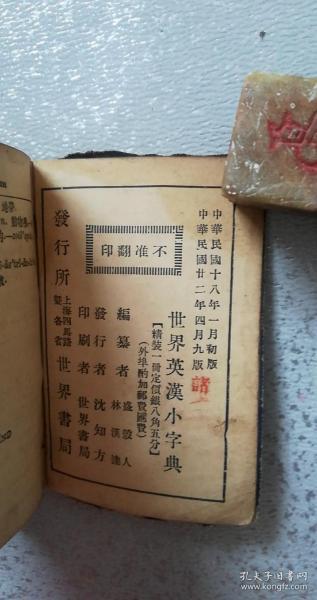 中華民國十八年一月初版
中華民國廿二年四月九版
世界英漢小字典
【精裝一冊定價銀八角五分】
（外埠酌加郵費匯費）
不准翻印
編纂者
盛穀人
林漢達
發行者 沈知方
印刷者 世界書局
發行所
上海四馬路
暨各省
世界書局
孔夫子旧书网